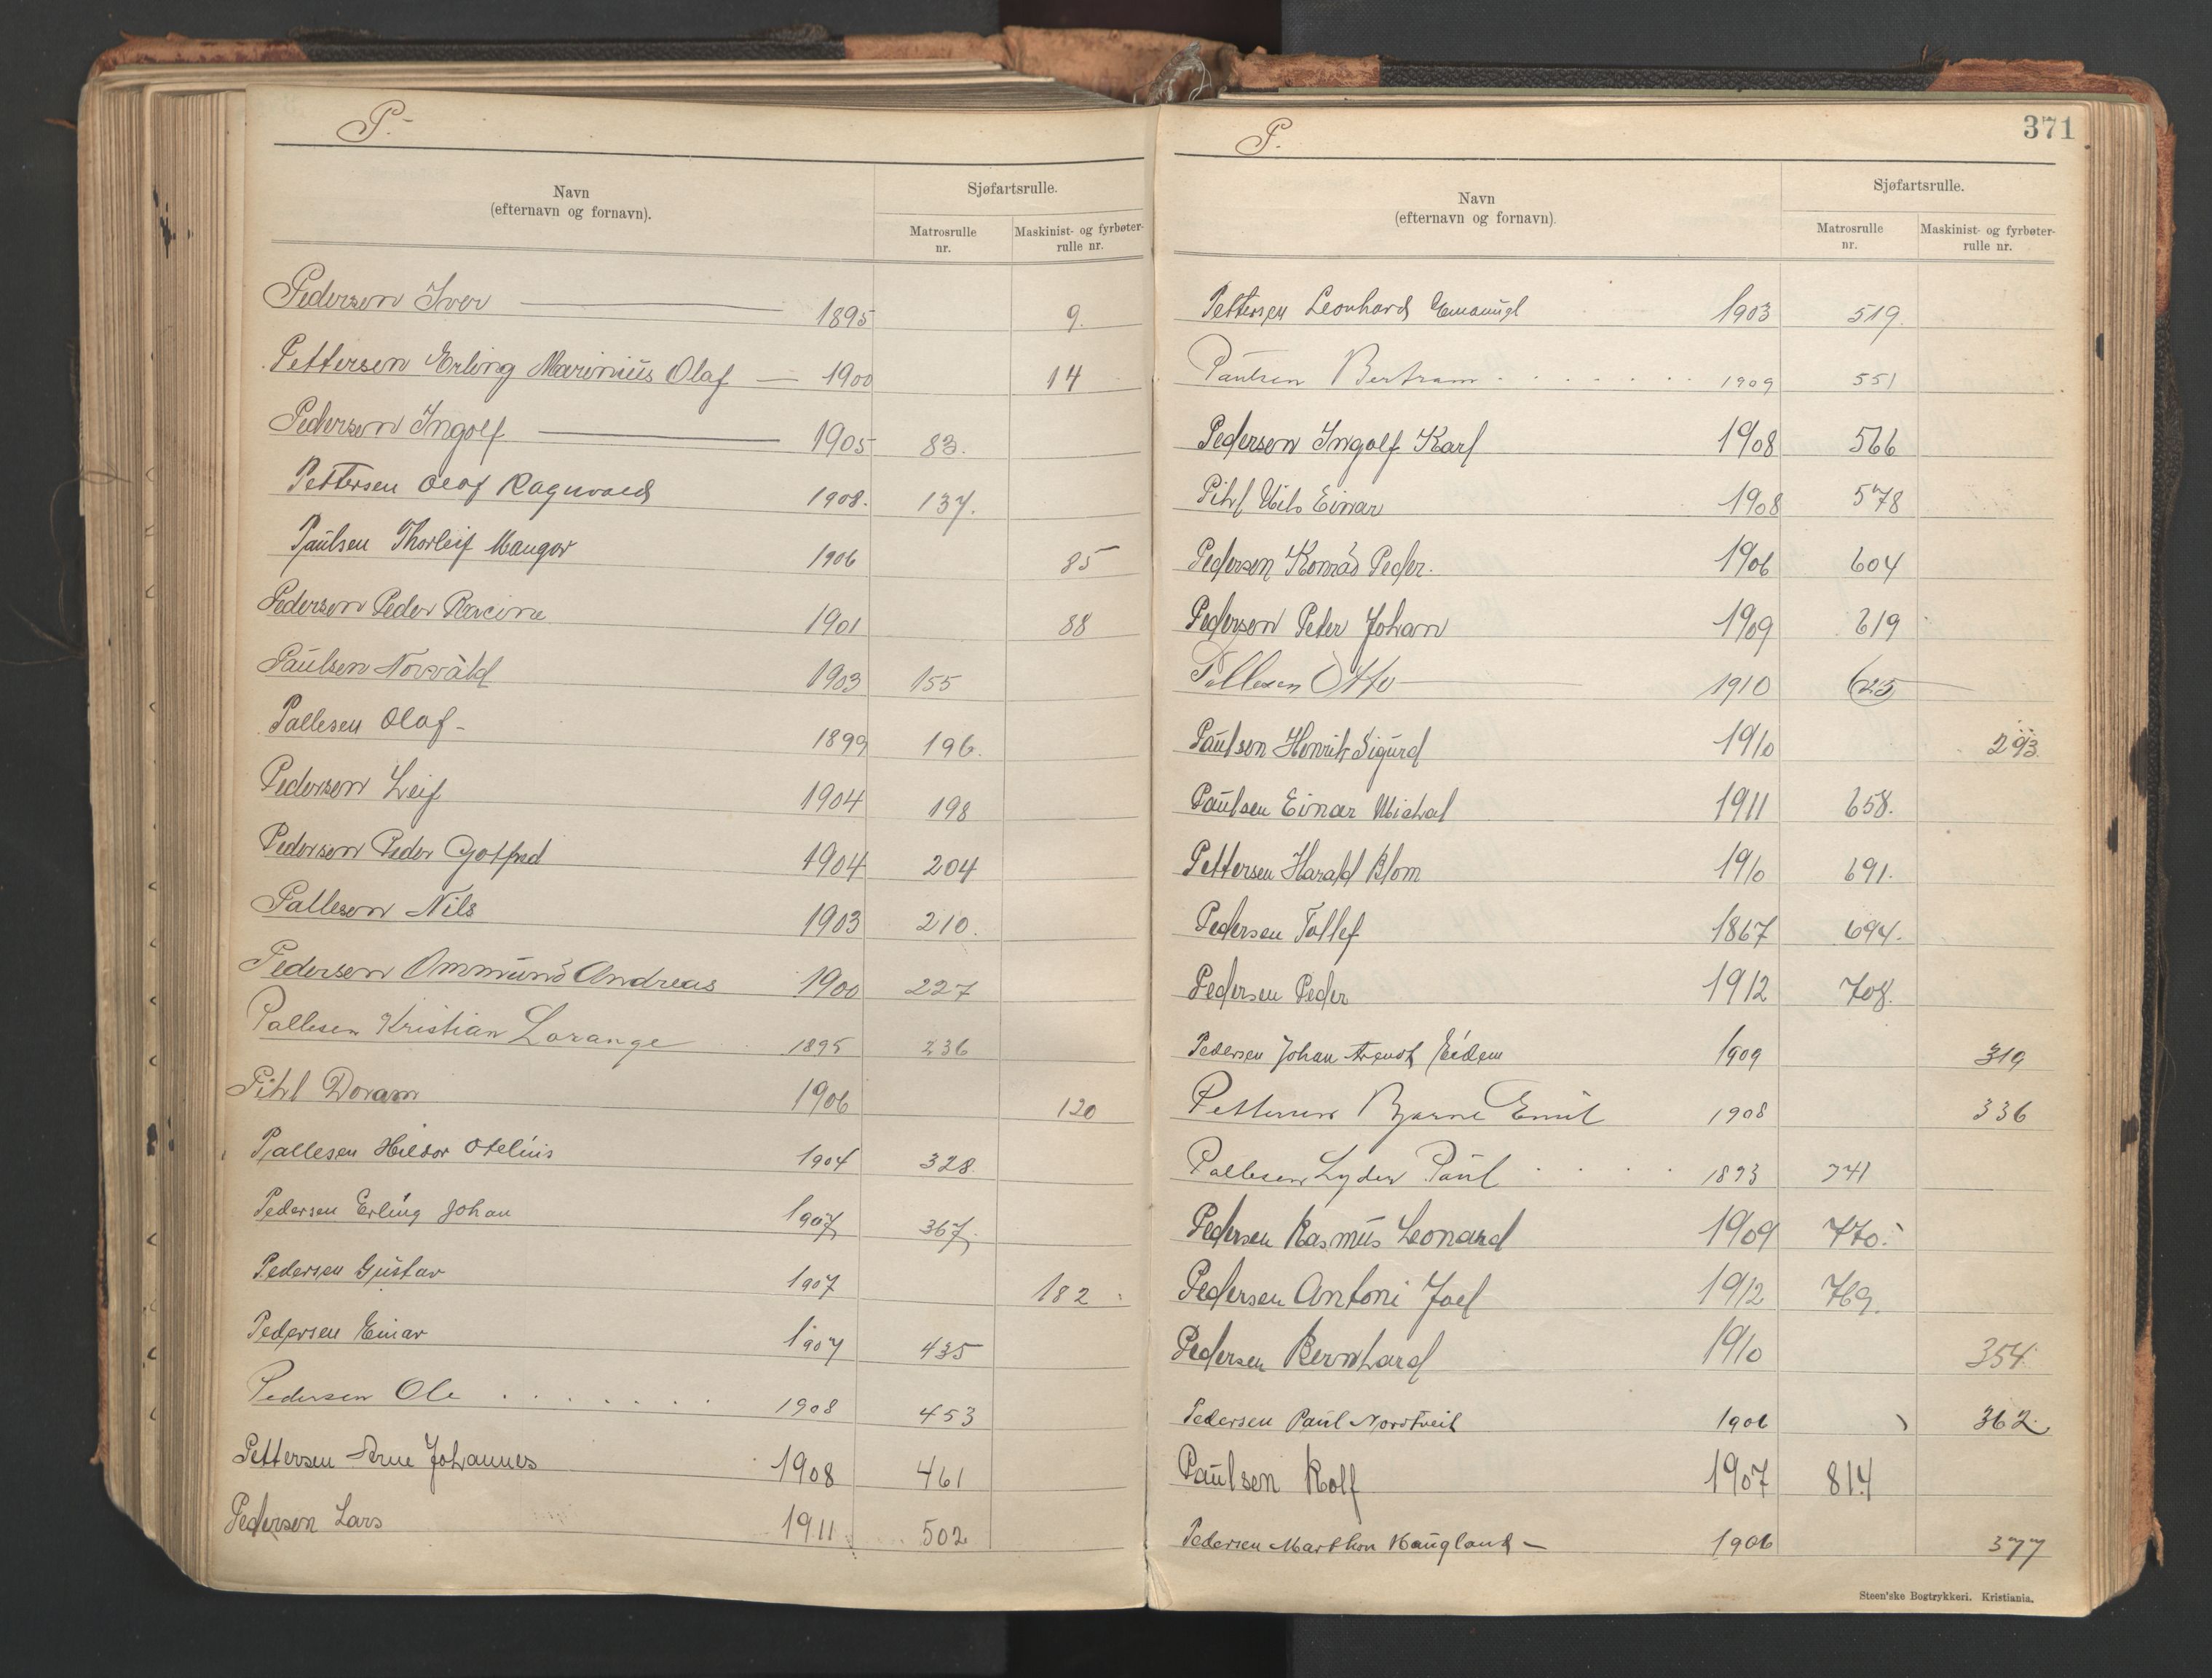 P.-
Navn
(efternavn og fornavn).
Sjøfartsrulle.
Matrosrulle
nr.
Maskinist- og fyrbøter-
rulle nr.
Pedersen Iver 1895 9.
Pettersen Erling Marinius Olaf — 1900 14
Pedersen Ingolf 1905 83.
Pettersen Olaf Ragnvald 1908. 137.
Paulsen Thorleif Mangor 1906 85
Pedersen Peder 1901 88
Paulsen Norvald 1903 155
Pallesen Olaf - 1899 196.
Pedersen Leif 1904 198
Pedersen Peder Gotfred 1904 204
Pallesen Nils 1903 210.
Pedersen Ommund Andreas 1900 227
Pallesen Kristian Lorange 1895 236
Pihl Doram 1906 120
Pallesen Hildor Otelius 1904 328
Pedersen Erling Johan 1907 367
Pedersen Gustav 1907 182
Pedersen Einar 1907 435
Pedersen Ole . . . . . . 1908 453
Pettersen Arne Johannes 1908 461
Pedersen Lars 1911 502
P.
371
Navn
(efternavn og fornavn).
Sjøfartsrulle.
Matrosrulle
nr.
Maskinist- og fyrbøter-
rulle nr.
Pettersen Leonhard Emanuel 1903 519
Paulsen Bertram . . . . . . . 1909 551
Pedersen Ingolf Karl 1908 566
Pihl Nils Einar 1908 578
Pedersen Konrad Peder. 1906 604
Pedersen Peter Johan 1909 619
Pallesen Otto 1910 625
Paulsen Henrik Sigurd 1910 293
Paulsen Einar Michal 1911 658.
Pettersen Harald Blom 1910 691.
Pedersen Tollef 1867 694.
Pedersen Peder 1912 708.
Pedersen Johan Arendt Eidem 1909 319
Pettersen Bjarne Emil 1908 336
Pallesen Lyder Paul . . . . 1893 741
Pedersen Rasmus Leonard 1909 770.
Pedersen Antoni Joel 1912 769.
Pedersen Bernhard 1910 354.
Pedersen Paul Nordtveit 1906 362.
Paulsen Rolf 1907 814
Pedersen Marthon Haugland — 1906 377
Steen'ske Bogtrykkeri. Kristiania.